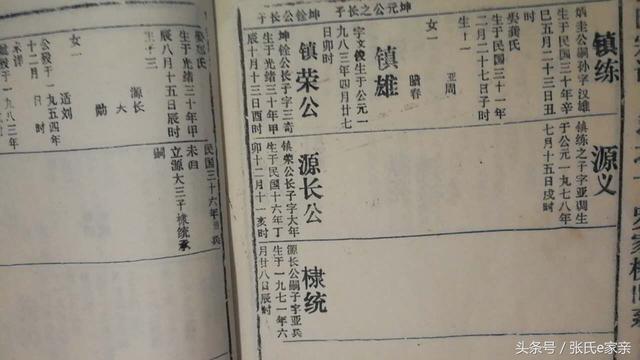 坤元公之长子
坤铨公长子
镇练
炳圭公嗣孙字汉雄
生于民国三十年辛
巳五月二十三日丑
时
娶龚氏
生于民国三十一年
二月二十七日子时
生一子
亚周
女一
瞻春
镇雄
字文俊生于公元一
九八三年四月廿七
日卯时
镇荣公
坤铨公长子字三奇
生于光绪三十年甲
辰十月十三日酉时
源义
镇练之子字亚调生
于公元一九七八年
七月十五日戌时
源长公
镇荣公长子字大年
生于民国十六年丁
卯十二月十一亥时
棣统
源长公嗣子字亚兵
生于一九七一年六
月廿八日辰时
生于光绪三十年甲
辰八月十五日辰时
生子三
源长
大
勋
女一
适刘
公殁于一九五四年
十二月 日 时
民国三十六年 兵
未归
立源大三子棣统承
嗣
头条号/张氏e家亲